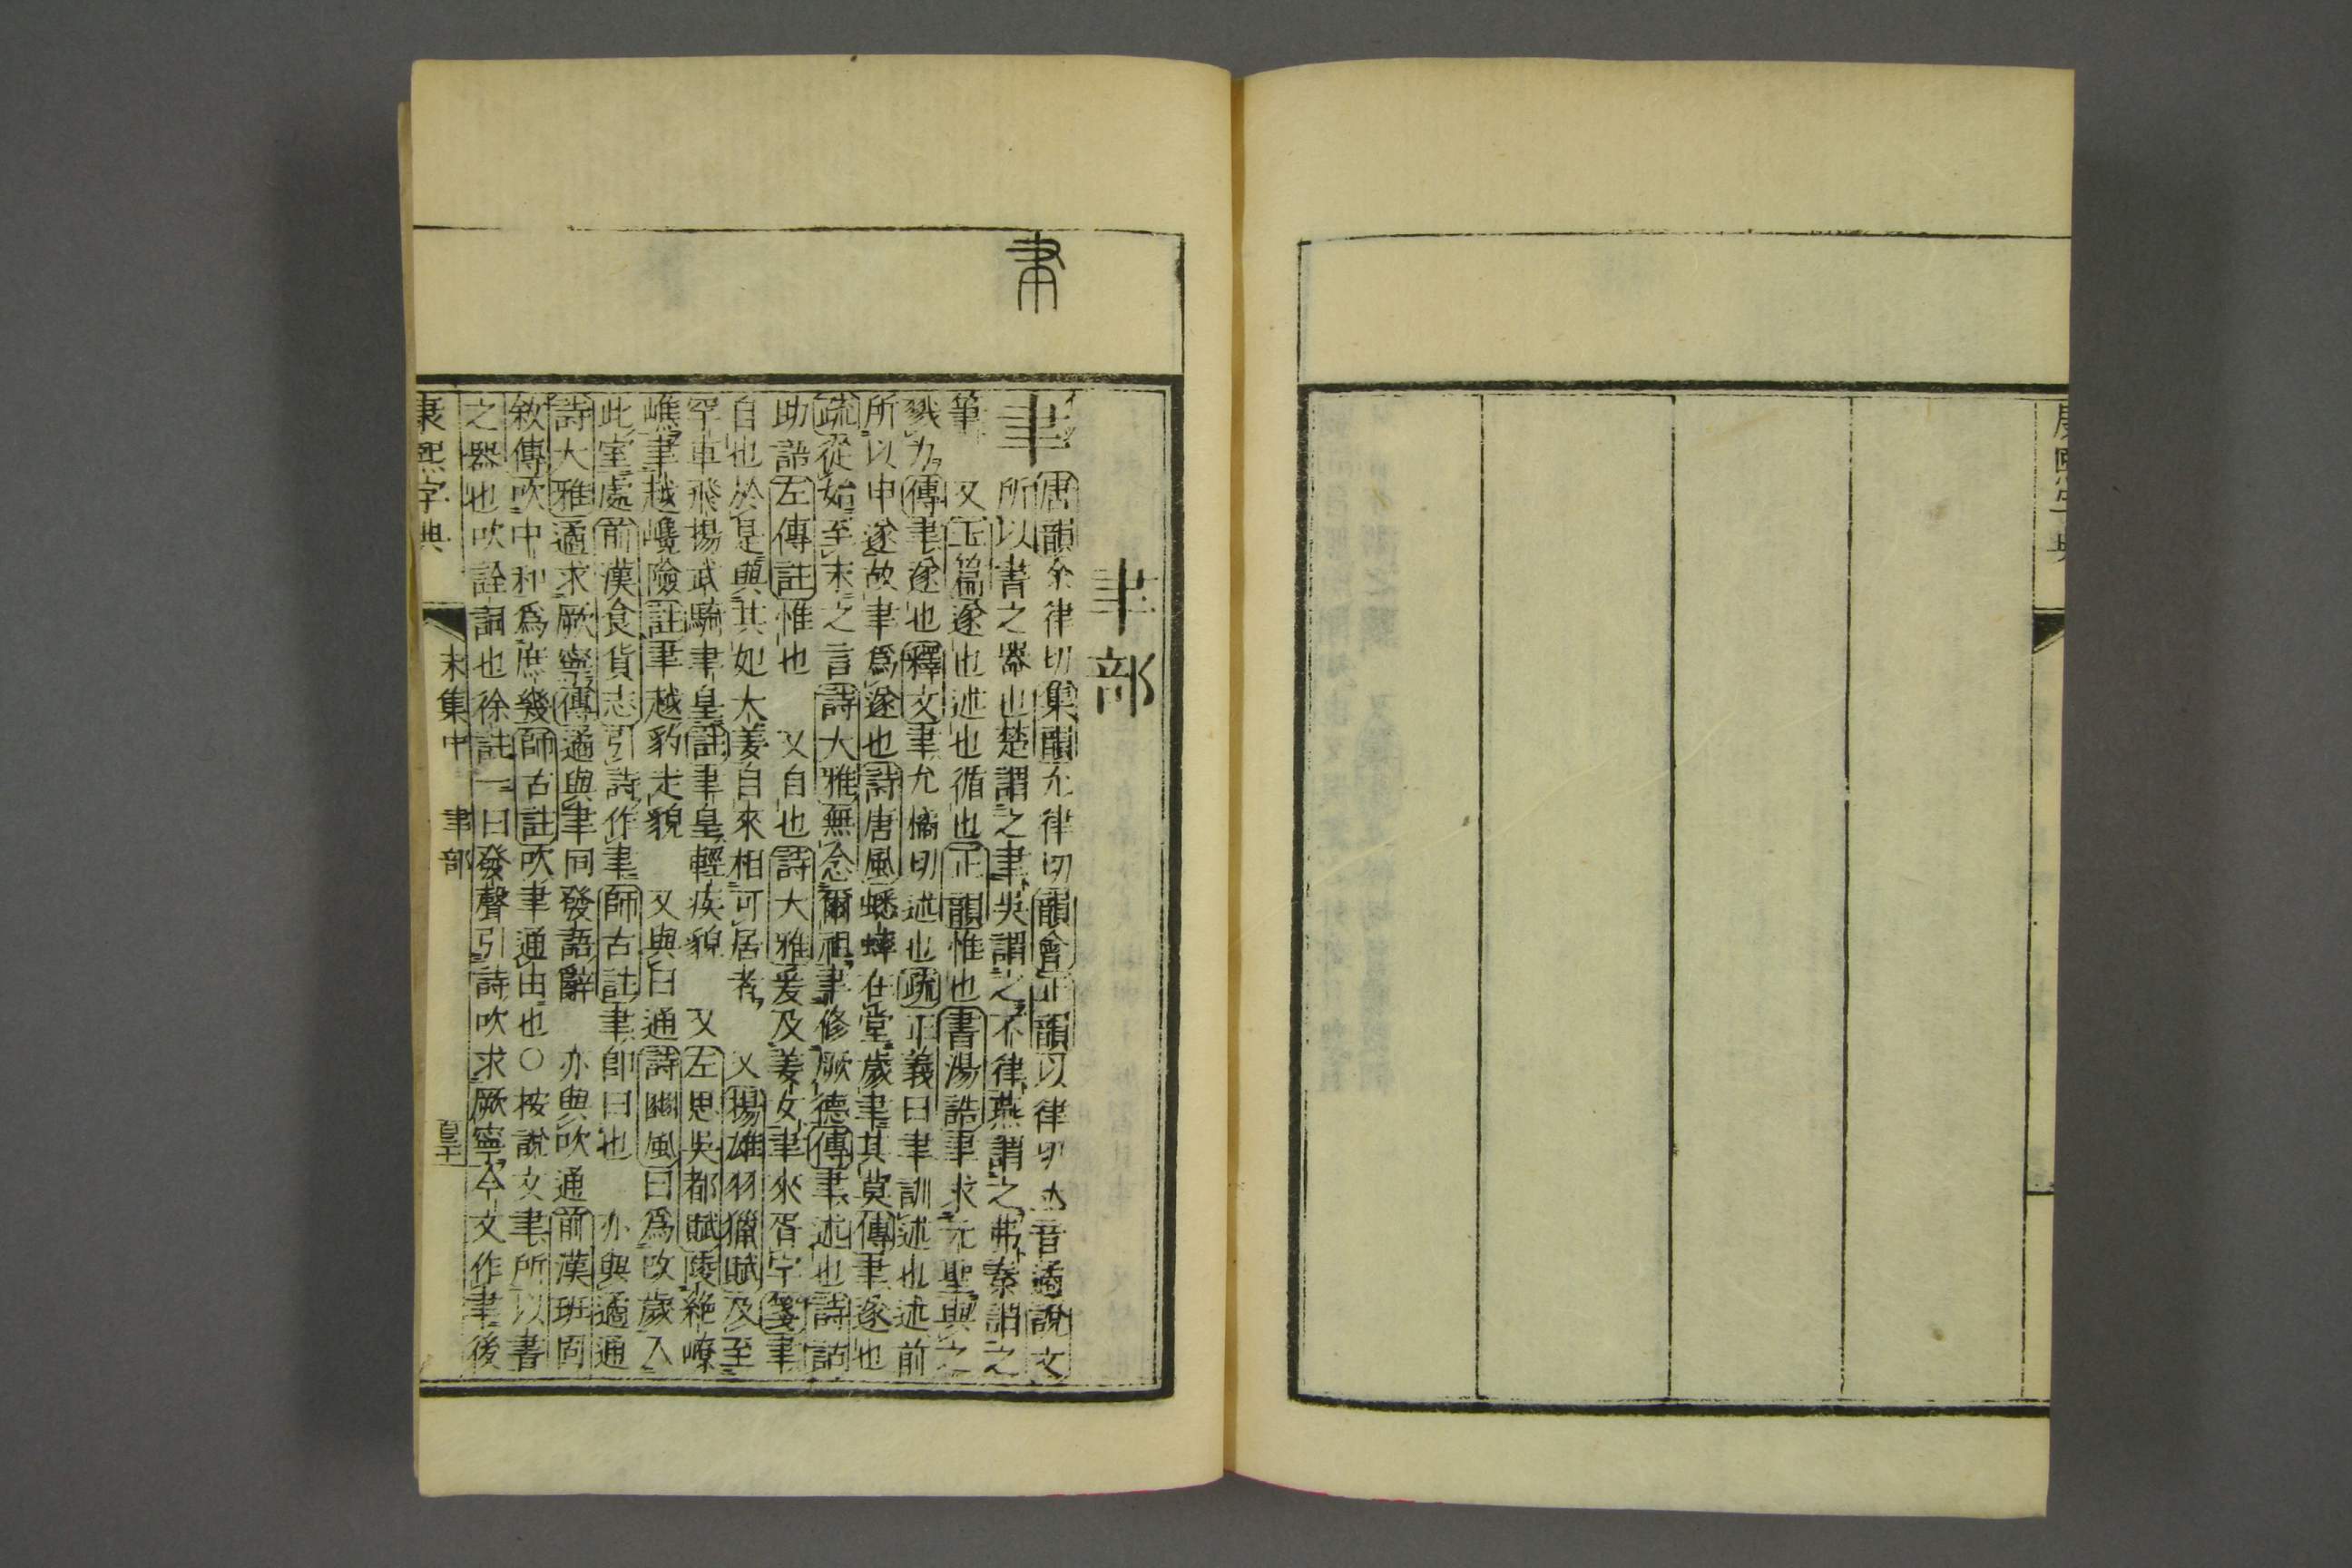 康熙字典
聿部
聿
唐韻余律切集韻允律切韻會正韻以律切𠀤音遹說文
所以書之器也楚謂之聿吳謂之不律燕謂之弗秦謂之
筆 又玉篇遂也述也循也正韻惟也書湯誥聿求元聖與之
戮力傳聿遂也釋文聿允橘切述也疏正義曰聿訓述也述前
所以申遂故聿爲遂也詩唐風蟋蟀在堂歲聿其莫傳聿遂也
疏從始至末之言詩大雅無念爾祖聿修厥德傳聿述也詩詁
助語左傳註惟也 又自也詩大雅爰及姜女聿來胥宇箋聿
自也於是與其妃大姜自來相可居者 又揚雄羽獵賦及至
罕車飛揚武騎聿皇註聿皇輕疾貌 又左思吳都賦陵絕嶛
嶕聿越巉險註聿越豹走貌 又與曰通詩豳風曰爲改歲入
此室處前漢食貨志引詩作聿師古註聿卽曰也 亦與遹通
詩大雅遹求厥寧傳遹與聿同發語辭 亦與吹通前漢班固
敘傳吹中和爲庶幾師古註吹聿通由也○按說文聿所以書
之器也吹詮詞也徐註一曰發聲引詩吹求厥寧今文作聿後
康熙字典 未集中 聿部